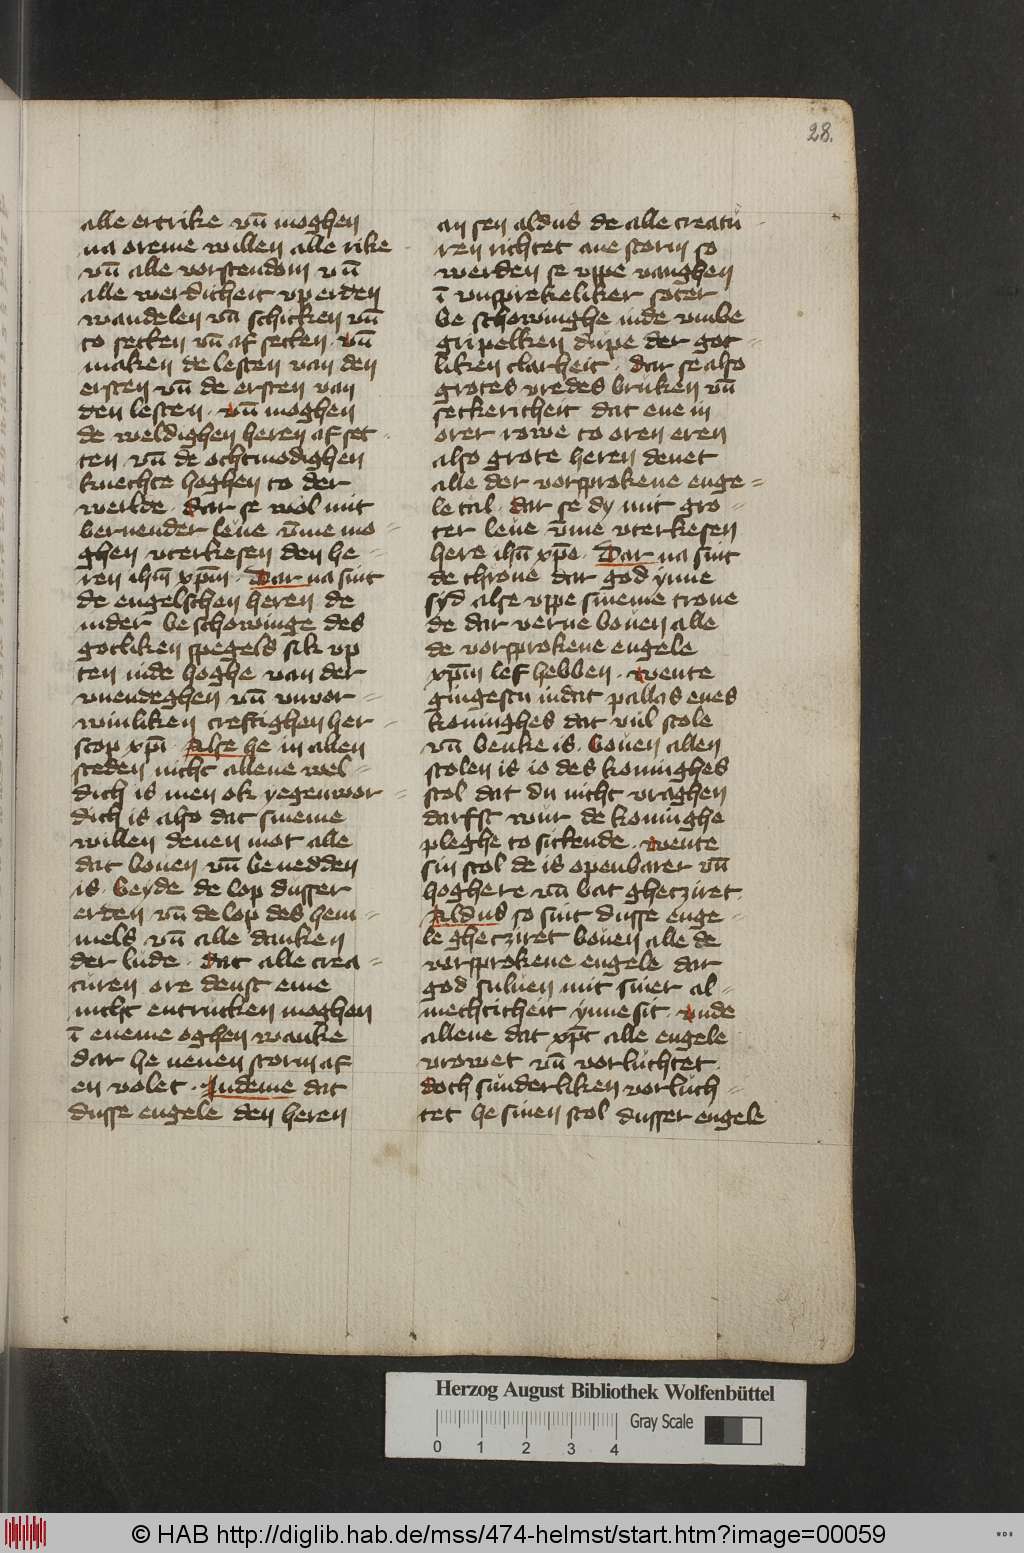 28.
alle ertrike vn̄ moghen
na oreme willen alle rike
vn̄ alle vorstendom vn̄
alle werdicheit vp erden
wandelen vn̄ schicken vn̄
to setten vn̄ af setten · vn̄
maken de lesten van den
ersten vn̄ de ersten van
den lesten · vn̄ moghen
de weldighen heren af set
ten vn̄ de othmodighen
knechte hoghen to der
werlde · dar se wol mit
bernender leue vm̄e mo=
ghen vterkesen den he=
ren ihm̄ xp̄m · Dar na sint
de engelschen heren de
inder beschowinge des
gotliken spegels sik vp
ten inde hoghe van der
vnendeghen vn̄ vnvor=
winliken creftighen her=
scop xp̄i · Alse he in allen
steden nicht allene wel=
dich is men ok yegenwor=
dich is also dat sineme
willen denen mot alle
dat bouen vn̄ benedden
is · beyde de lop dusser
erden vn̄ de lop des hem=
mels vn̄ alle danken
der lude · dat alle crea=
turen ore denst eme
nicht entrucken moghen
ī eneme oghen wanke
dar he nenen storm af
en volet · Indeme dat
dusse engele den heren
an sen aldus de alle creatu=
ren richtet ane storm so
werden se vppe vanghen
ī vnsprekeliker soter
beschowinghe inde vmbe
gripelken dupe der got=
liken clarheit · dar se also
grotes vredes bruken vn̄
sekericheit dat ene in
orer rowe to oren eren
also grote heren denet
alle der vorsprokene enge=
le tal · dar se dy mit gro=
ter leue vm̄e vterkesen
here ihū xp̄e · Dar na sint
de throne dar god ynne
syd alse vppe sineme trone
de dar verne bouen alle
de vorsprokene engele
xp̄m lef hebben · wente
gingestu indat pallas enes
koninghes dar vul stole
vn̄ benke is · bouen allen
stolen is io des koninghes
stol dat du nicht vraghen
darfst wur de koninghe
pleghe to sittende · wente
sin stol de is openbarer vn̄
hoghere vn̄ bat ghecziret ·
Aldus so sint dusse enge=
le ghecziret bouen alle de
vorsprokene engele dar
god suluen mit siner al=
mechticheit ynne sit · vnde
allene dat xp̄c alle engele
vrowet vn̄ vorluchtet ·
doch sunderliken vorluch=
tet he sinen stol dusser engele
Herzog August Bibliothek Wolfenbüttel
Gray Scale
0 1 2 3 4
© HAB http://diglib.hab.de/mss/474-helmst/start.htm?image=00059